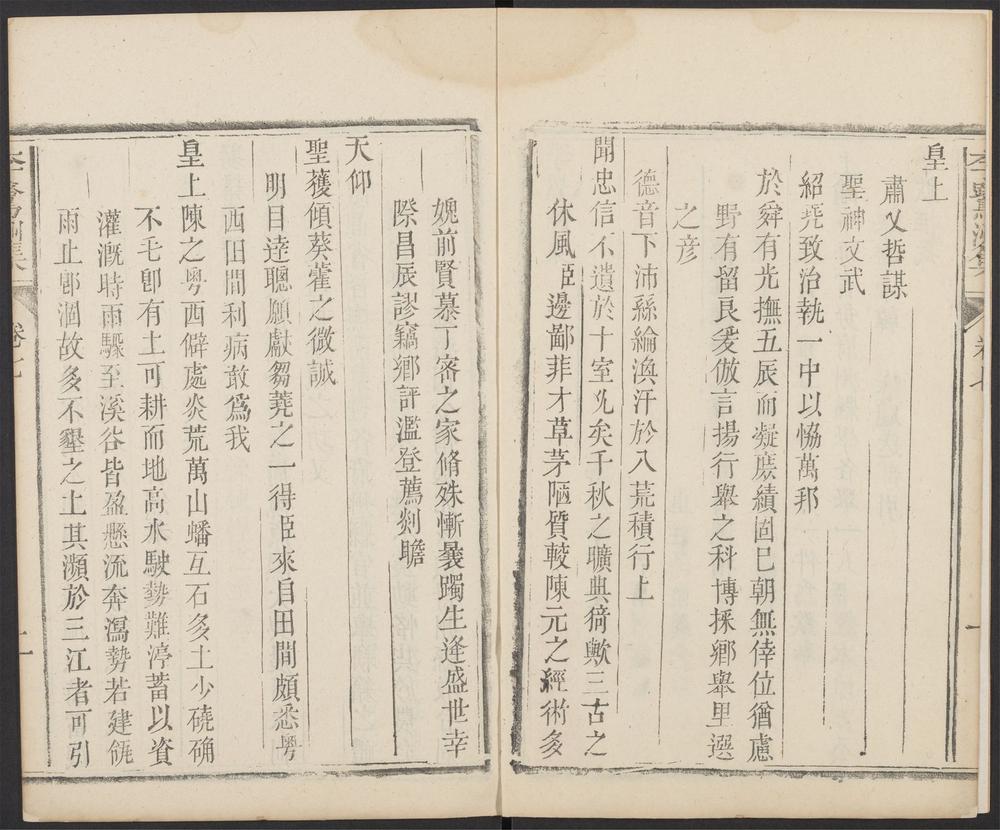 皇上
肅乂哲謀
聖神文武
紹堯致治執一中以恊萬邦
於舜有光撫五辰而凝庶績固已朝無倖位猶慮
野有留良爰倣言揚行舉之科博採鄉舉里選
之彦
德音下沛絲綸渙汗於八荒積行上
聞忠信不遺於十室凡矣千秋之曠典猗歟三古之
休風臣邊鄙菲才草茅陋質較陳元之經術多
媿前賢慕丁密之家脩殊慚曩躅生逢盛世幸
際昌辰謬竊鄉評濫登薦剡瞻
天仰
聖獲傾葵藿之微誠
明目達聰願獻芻蕘之一得臣來自田間頗悉粤
西田間利病敢爲我
皇上陳之粤西僻處炎荒萬山蟠互石多土少磽确
不毛卽有土可耕而地高水駛勢難渟蓄以資
灌漑時雨驟至溪谷皆盈懸流奔瀉勢若建瓴
雨止卽涸故多不墾之土其瀕於三江者可引
卷七